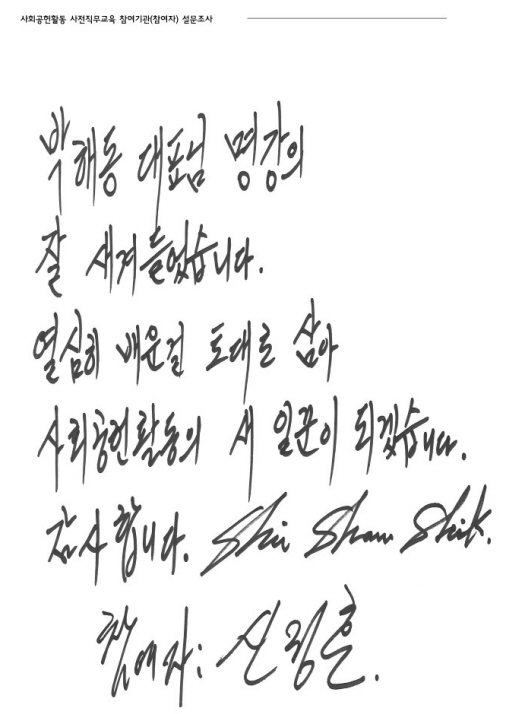 사회공헌활동 사전직무교육 참여기관(참여자) 설문조사
박해동 대표님 명강의
잘 새겨들었습니다.
열심히 배운걸 토대로 삼아
사회공헌활동의 새 일꾼이 되겠습니다.
감사합니다. Shin
참여자: 신